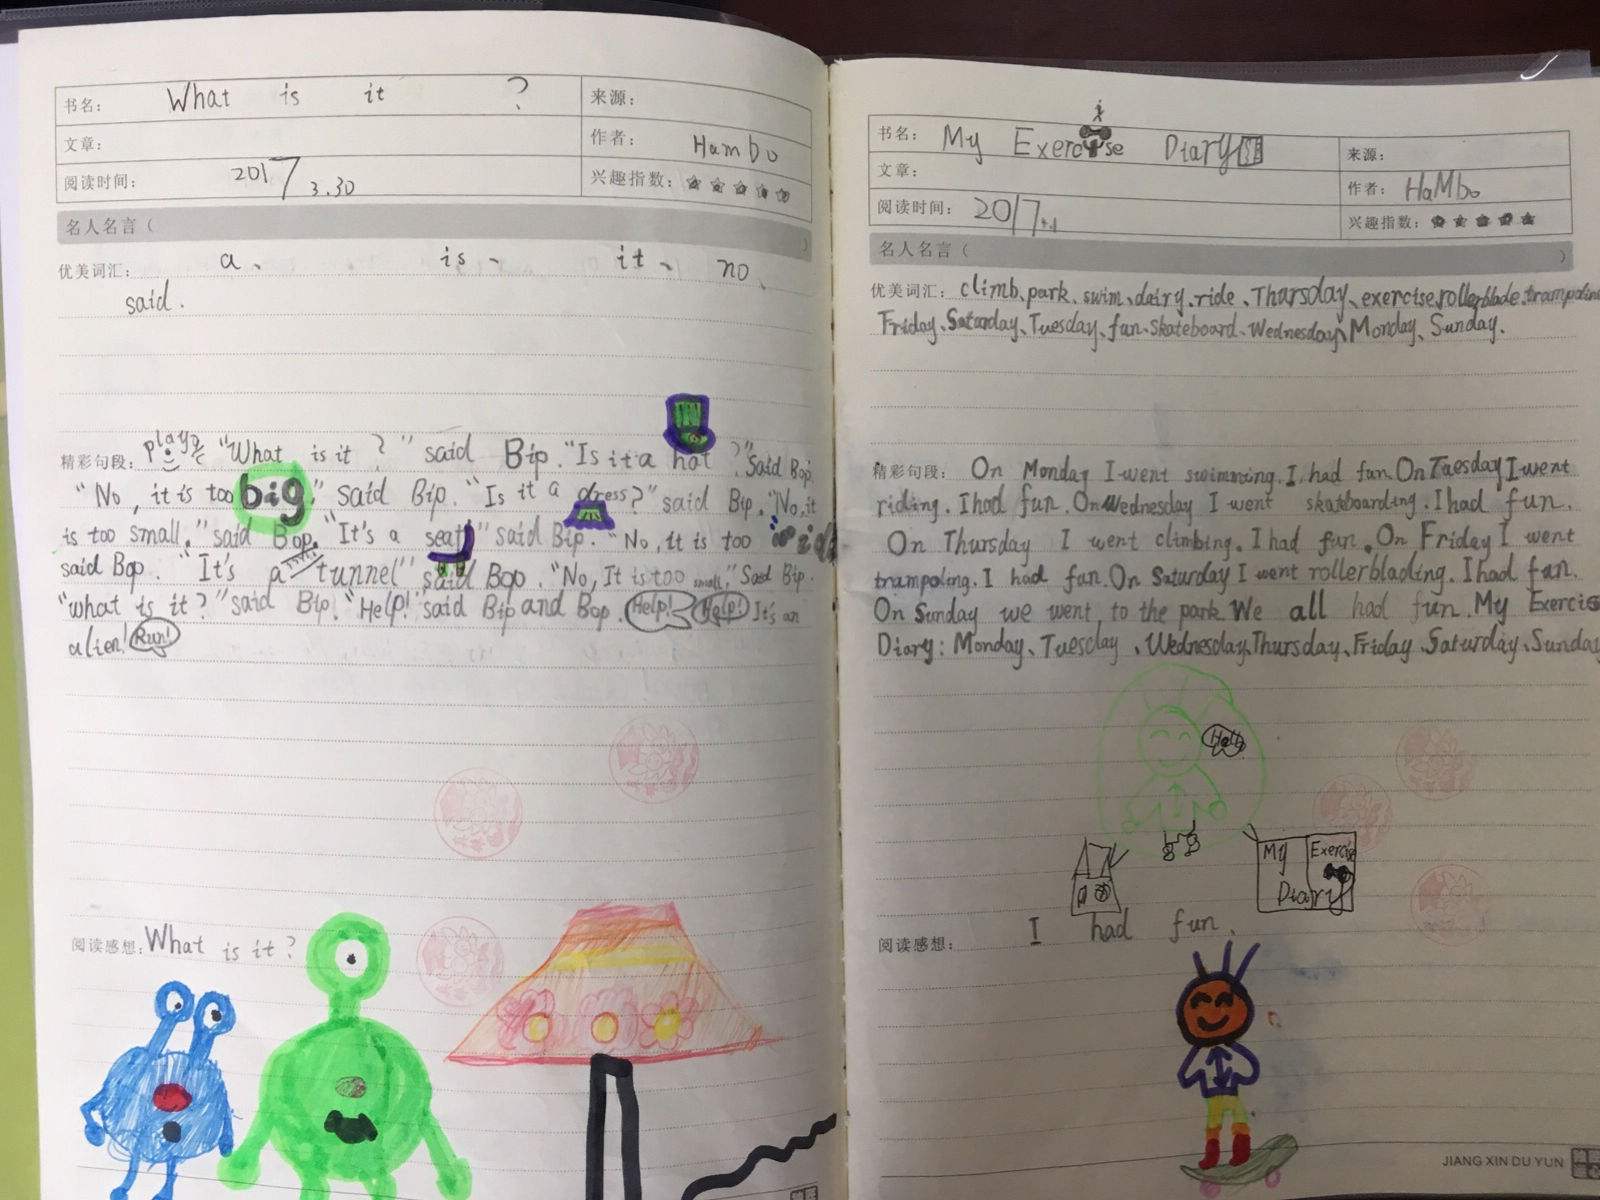 书名： What is it ?
来源：
文章：
作者： Hambo
阅读时间： 2017 3.30
兴趣指数：
名人名言（ ）
优美词汇： a、 is、 it、 no、
said.
精彩句段： play "What is it ?" said Bip. "Is it a hat ?" Said Bop.
"No, it is too big." said Bip. "Is it a dress?" said Bip. "No, it
is too small." said Bop. "It's a seat" said Bip. "No, it is too
said Bop. "It's a tunnel" said Bop. "No, It is too small." Said Bip.
"what is it?" said Bip. "Help!" said Bip and Bop. Help! Help! It's an
alien! Run!
阅读感想： What is it?
书名： My Exercise Diary
来源：
文章：
作者： HaMbo
阅读时间： 2017
兴趣指数：
名人名言（ ）
优美词汇： climb、park、swim、dairy、ride、Tharsday、exercise、rollerblade、trampoline
Friday、Saturday、Tuesday、fun、skateboard、Wednesday、Monday、Sunday.
精彩句段： On Monday I went swimming. I had fun. On Tuesday I went
riding. I had fun. On Wednesday I went skateboarding. I had fun.
On Thursday I went climbing. I had fun. On Friday I went
trampoling. I had fun. On Saturday I went rollerblading. I had fun.
On Sunday we went to the park. We all had fun. My Exercise
Diary: Monday、Tuesday、Wednesday、Thursday、Friday、Saturday、Sunday
My Exercise
Diary
阅读感想： I had fun.
JIANG XIN DU YUN